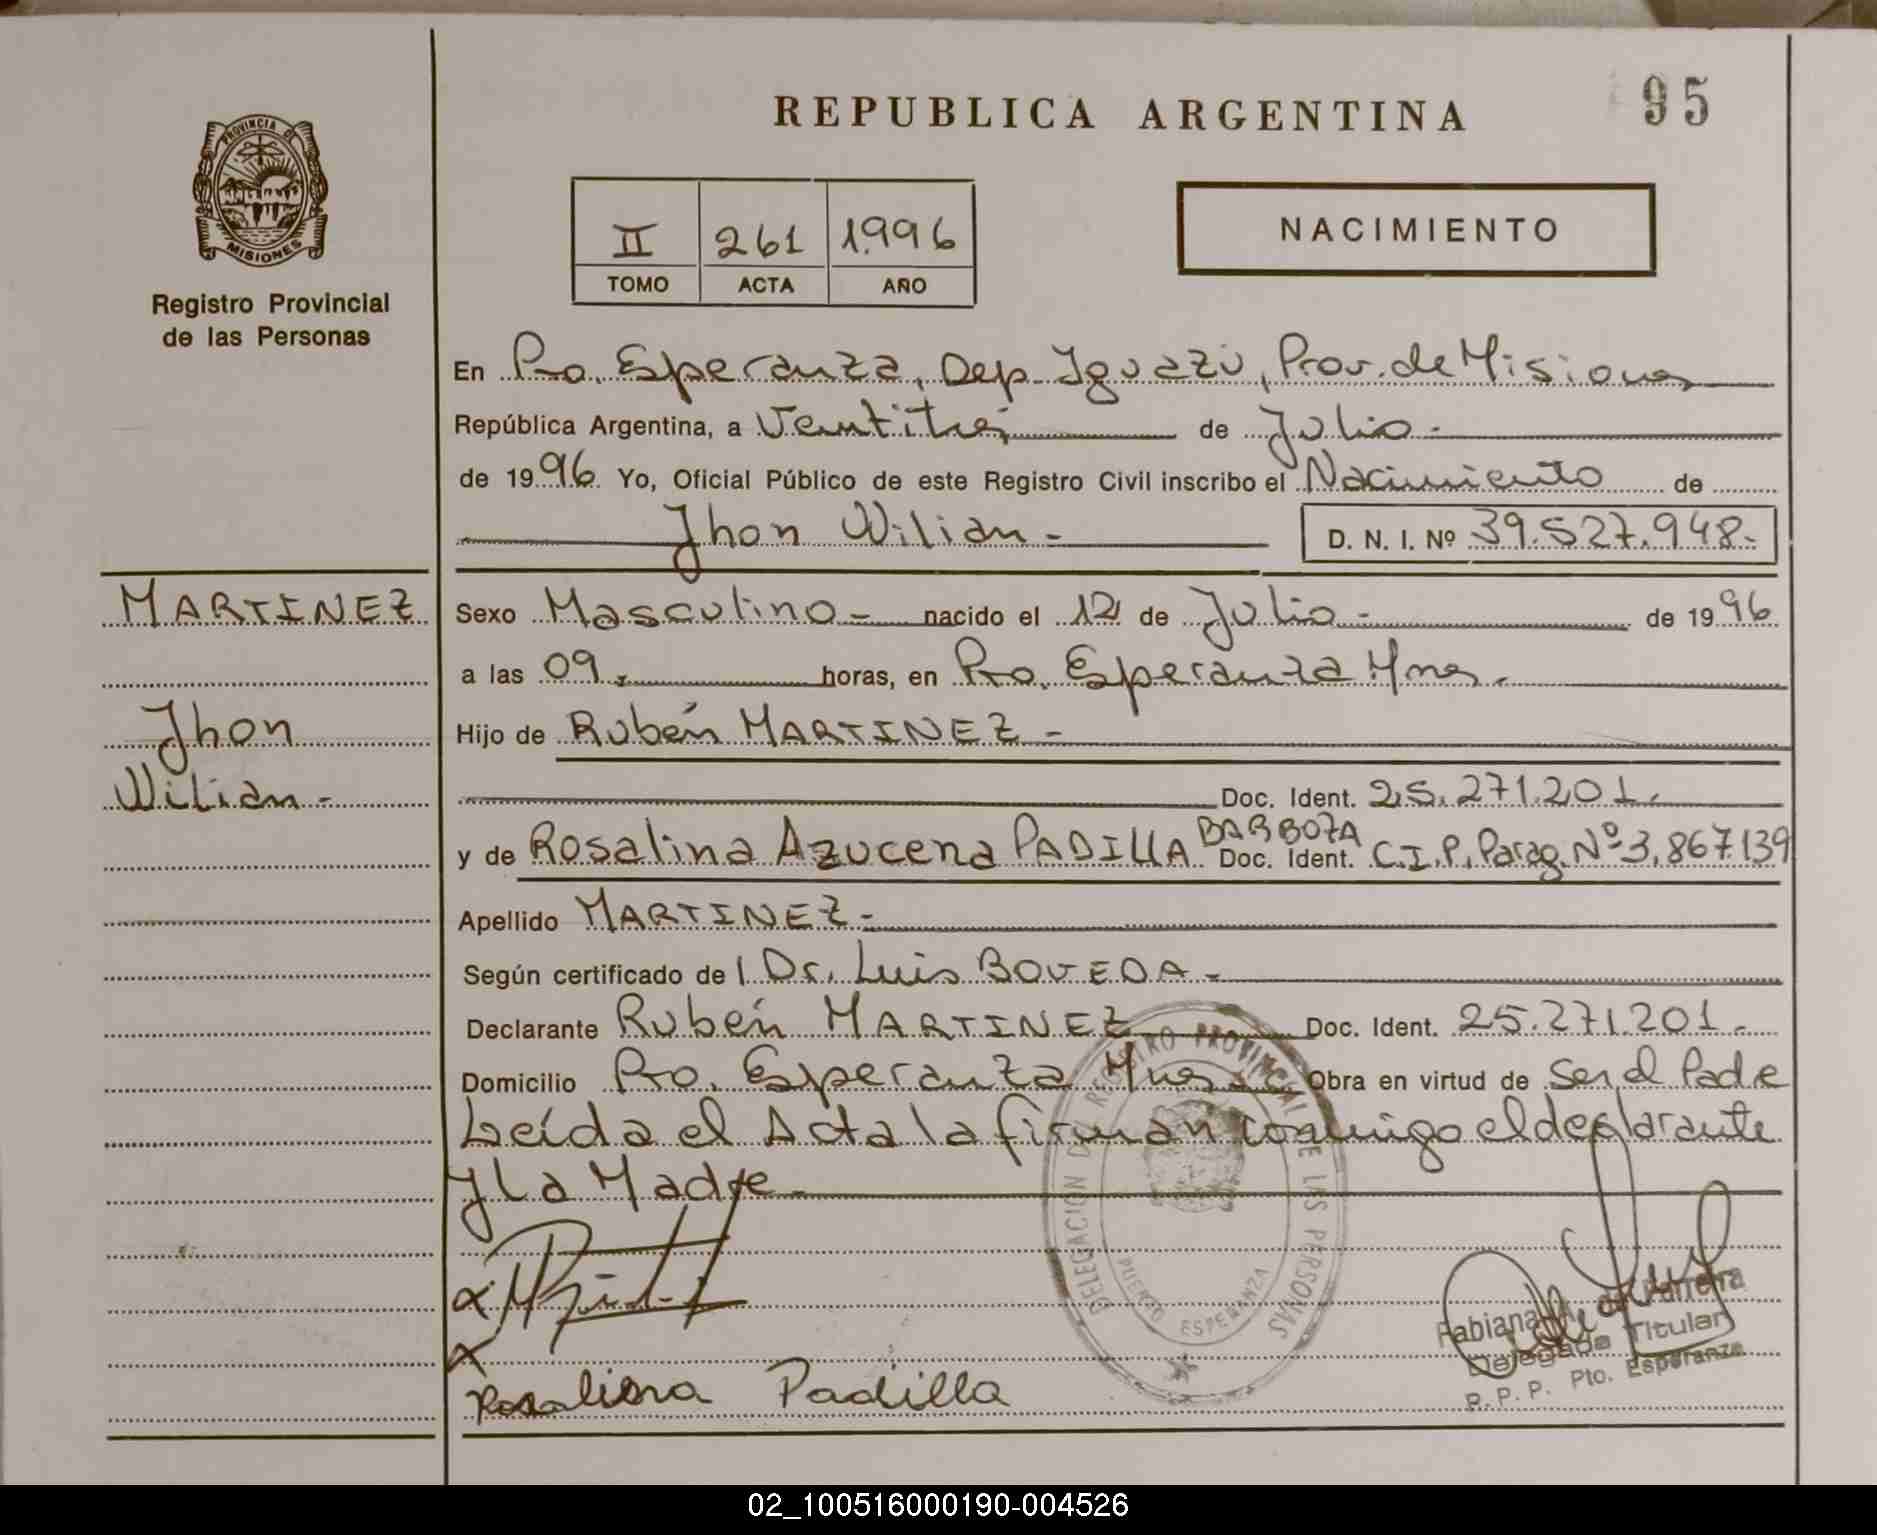 95
REPUBLICA ARGENTINA
PROVINCIA DE
MISIONES
Registro Provincial
de las Personas
II 261 1996
TOMO ACTA AÑO
NACIMIENTO
En Pto. Esperanza, Dep. Iguazú, Prov. de Misiones
República Argentina, a Ventitrés de Julio.-
de 1996 Yo, Oficial Público de este Registro Civil inscribo el Nacimiento de
Jhon Wilian.- D. N. I. Nº 39.527.948.-
MARTINEZ
Jhon
Wilian.-
Sexo Masculino.- nacido el 12 de Julio.- de 1996
a las 09. horas, en Pto. Esperanza Mnes.
Hijo de Rubén MARTINEZ.-
Doc. Ident. 25.271.201.
y de Rosalina Azucena PADILLA BARBOZA Doc. Ident. C.I.P. Parag. Nº 3.867.139
Apellido MARTINEZ.-
Según certificado de l Dr. Luis BOVEDA.-
Declarante Rubén MARTINEZ Doc. Ident. 25.271.201.-
Domicilio Pto. Esperanza Mnes. Obra en virtud de Ser el Padre
Leída el Acta la firman conmigo el declarante
y la Madre.-
DELEGACION DE REGISTRO PROVINCIAL DE LAS PERSONAS
PUERTO ESPERANZA
Rosalina Padilla
Fabiana Ferreira
Delegada Titular
R. P. P. Pto. Esperanza
02_100516000190-004526